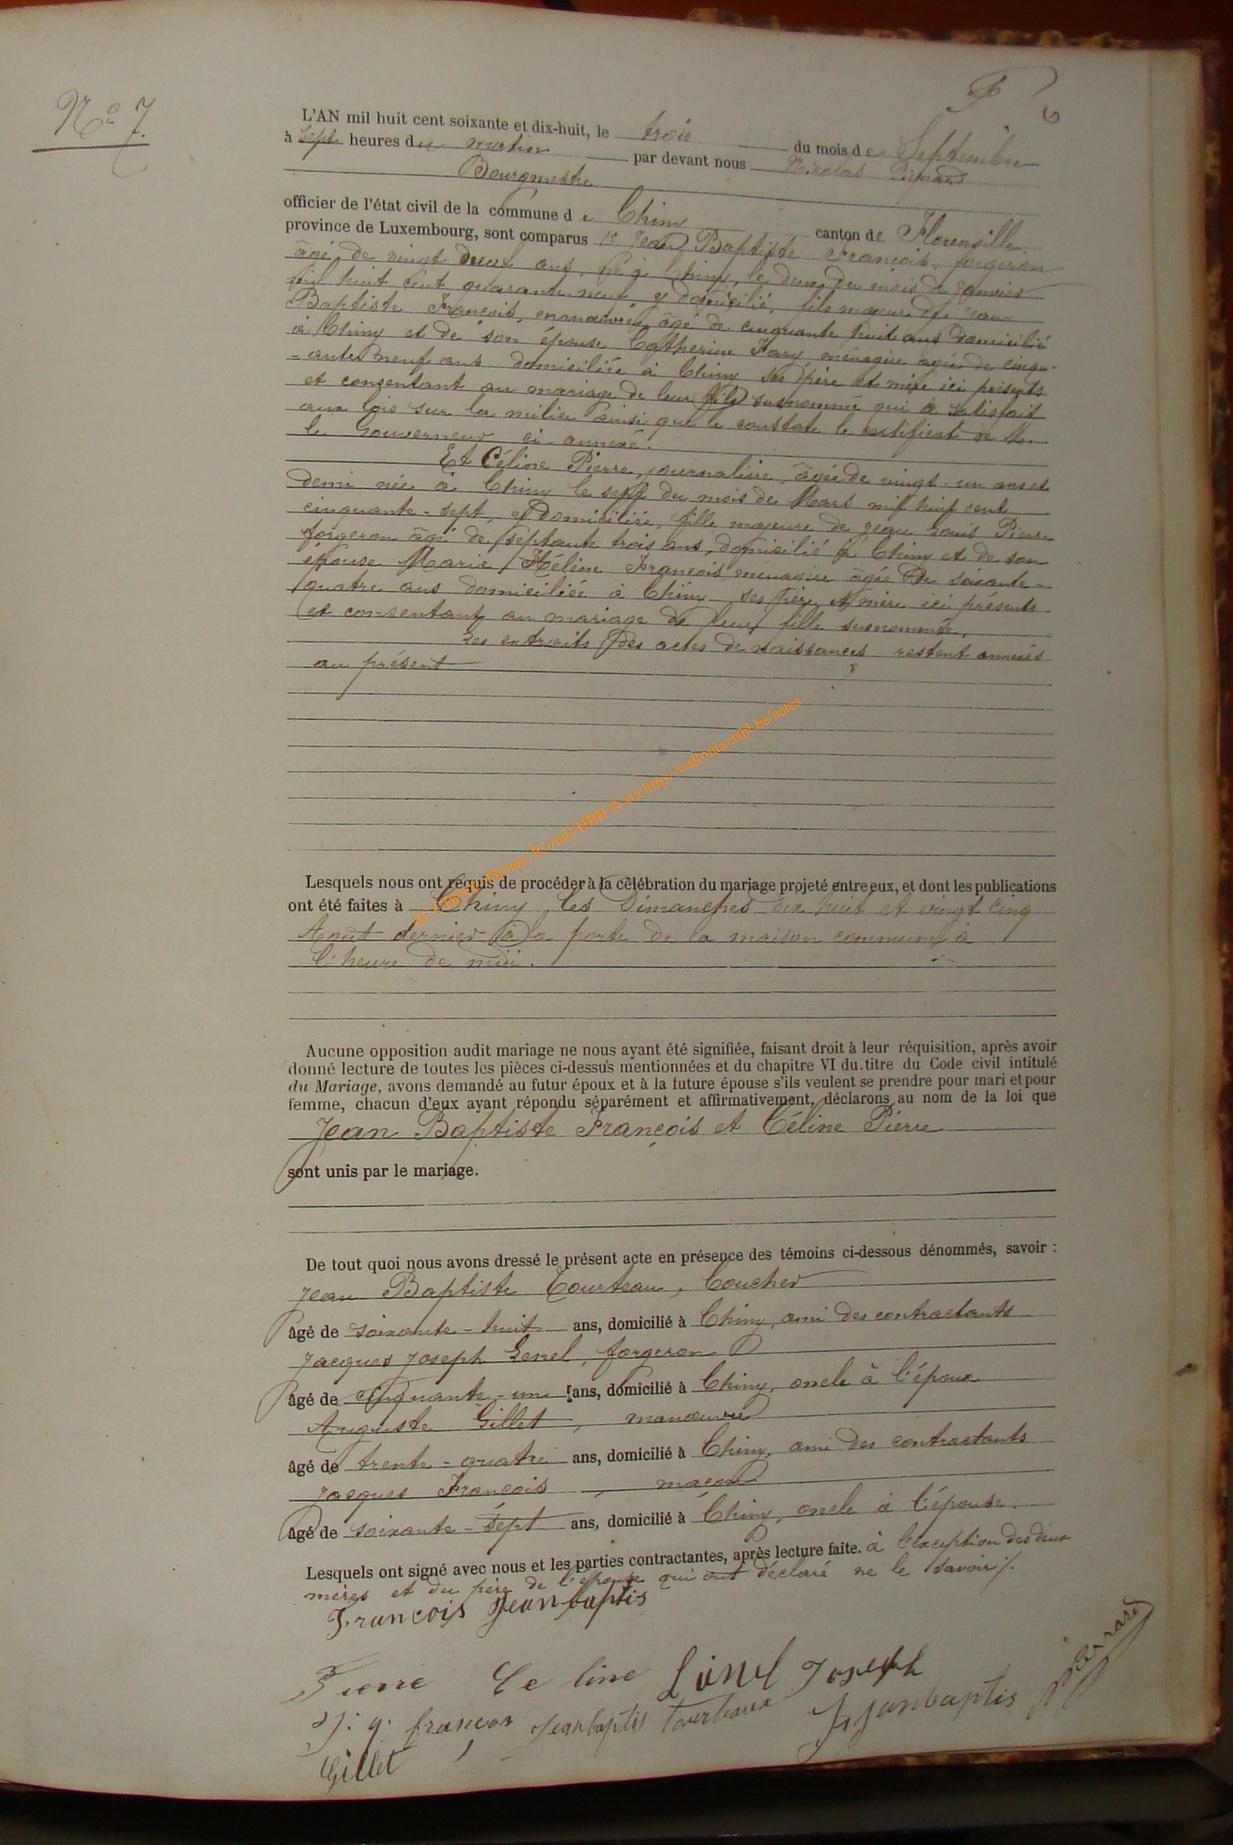 N° 7.
6
L'AN mil huit cent soixante et dix-huit, le trois du mois de Septembre
à sept heures du matin par devant nous Nicolas Pierrard
Bourgmestre
officier de l'état civil de la commune de Chiny canton de Florenville
province de Luxembourg, sont comparus 1° Jean Baptiste François, forgeron
âgé de vingt neuf ans, né à Chiny, le deux du mois de Janvier
mil huit cent quarante neuf, y domicilié, fils majeur de Jean
Baptiste François, manœuvre, âgé de cinquante huit ans domicilié
à Chiny et de son épouse Catherine ménagère âgée de cinqu-
-ante neuf ans domiciliée à Chiny ses père et mère ici présents
et consentant au mariage de leur fils susnommé qui a satisfait
aux lois sur la milice ainsi que le constate le certificat de M.
le Gouverneur ci-annexé.
Et Céline Pierre, journalière, âgée de vingt-un ans et
demi née à Chiny le sept du mois de Mars mil huit cent
cinquante-sept, y domiciliée, fille majeure de Jean Louis Pierre
forgeron âgé de septante trois ans, domicilié à Chiny et de son
épouse Marie Hélène François, ménagère âgée de soixante-
quatre ans domiciliée à Chiny ses père et mère ici présents
et consentant au mariage de leur fille susnommée.
Les extraits des actes de naissances restent annexés
au présent
AC CHINY Photos JConal/HBH @ via http://wallonia-asbl.be/actes
Lesquels nous ont requis de procéder à la célébration du mariage projeté entre eux, et dont les publications
ont été faites à Chiny, les Dimanches dix huit et vingt cinq
Août dernier à la porte de la maison commune à
l'heure de midi.
Aucune opposition audit mariage ne nous ayant été signifiée, faisant droit à leur réquisition, après avoir
donné lecture de toutes les pièces ci-dessus mentionnées et du chapitre VI du titre du Code civil intitulé
du Mariage, avons demandé au futur époux et à la future épouse s'ils veulent se prendre pour mari et pour
femme, chacun d'eux ayant répondu séparément et affirmativement, déclarons au nom de la loi que
Jean Baptiste François et Céline Pierre
sont unis par le mariage.
De tout quoi nous avons dressé le présent acte en présence des témoins ci-dessous dénommés, savoir :
Jean Baptiste Tourteau,
âgé de soixante-huit ans, domicilié à Chiny, ami des contractants
Jacques Joseph Lenel, forgeron
âgé de cinquante-un ans, domicilié à Chiny, oncle à l'époux
Auguste Gillet, manœuvre
âgé de trente-quatre ans, domicilié à Chiny, ami des contractants
Jacques François, maçon
âgé de soixante-sept ans, domicilié à Chiny, oncle à l'épouse.
Lesquels ont signé avec nous et les parties contractantes, après lecture faite. à l'exception des deux
mères et du père de l'épouse qui ont déclaré ne le savoir.
François Jean baptis
Pierre Celine Lenel Joseph Pierrard
J. q. francois Jeanbaptis Tourteaux F Janbaptis
Gillet